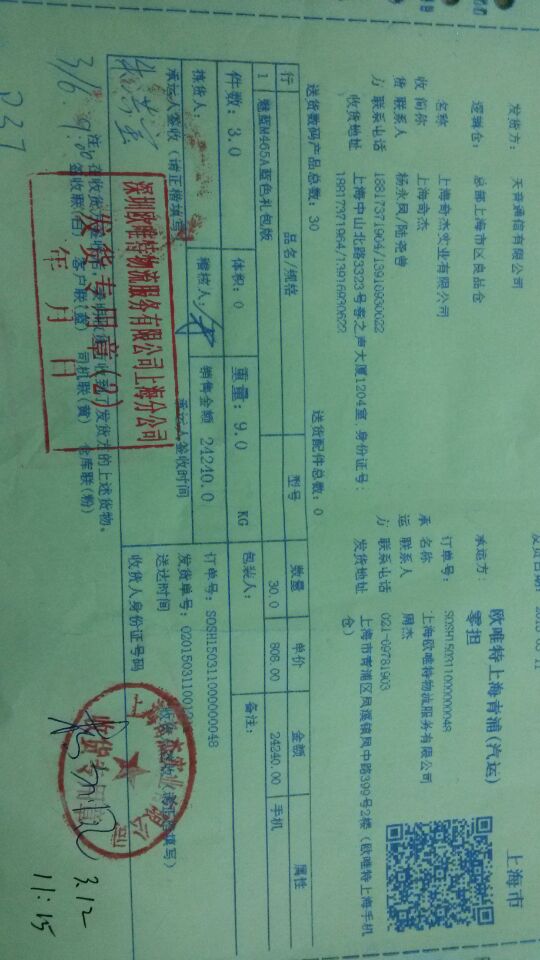 上海市
发货方： 天音通信有限公司
承运方： 欧唯特上海青浦(汽运)零担
逻辑仓： 总部上海市区良品仓
订单号： SOSH15031100000048
名称 上海奇杰实业有限公司
名称 上海欧唯特物流服务有限公司
收 简称 上海奇杰
货 联系人
承 联系人 周杰
运
方 联系电话 18817371964/13916930622
方 联系电话 021-69781903
收货地址 上海中山北路3323号客之声大厦1204室,身份证号:
18817371964/13916930622
发货地址 上海市青浦区凤溪镇凤中路399号2楼（欧唯特上海手机仓）
送货数码产品总数：30 送货配件总数：0
行 品名/规格 型号 数量 单价 金额 属性
1 魅蓝M465A蓝色礼包版 30.0 808.00 24240.00 手机
件数：3.0 体积：0 重量：9.0 KG 包装人： 备注：
拣货人： 稽核人： 销售金额 24240.0
订单号：SOSH15031100000048
承运人签收（请正楷填写） 承运人签收时间
送达时间
收货人身份证号码
3/6 9:00
签收联(白) 客户联(蓝) 司机联(黄) 仓库联(粉)
深圳欧唯特物流服务有限公司上海分公司
发货专用章(2)
年 月 日
收货专用章
3.12
11:15